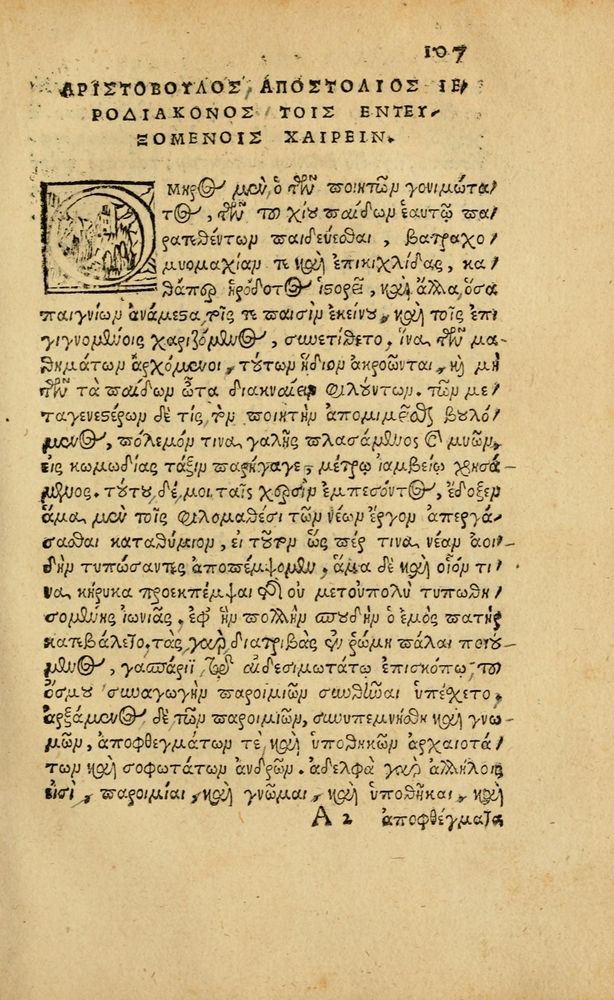 107
ΑΡΙΣΤΟΒΟΥΛΟΣ, ΑΠΟΣΤΟΛΙΟΣ ΙΕ/
ΡΟΔΙΑΚΟΝΟΣ ΤΟΙΣ ΕΝΤΕΥ/
ΞΟΜΕΝΟΙΣ ΧΑΙΡΕΙΝ.
Ομηρος μὲν ὁ τῶν ποιητῶν γονιμώτα/
τος, τῶν τοῦ χίου παίδων ἑαυτῷ πα/
ρατεθέντων παιδεύεσθαι, βατραχο/
μυομαχίαν τε καὶ ἐπικιχλίδας, κα/
θάπερ ἡρόδοτος ἱστορεῖ, καὶ ἄλλα, ὅσα
παιγνίων ἀνάμεστα τοῖς τε παισὶν ἐκείνου, καὶ τοῖς ἐπι/
γιγνομένοις χαριζόμενος, συνετίθετο, ἵνα τῶν μα/
θημάτων ἀρχόμενοι, τούτων ἥδιον ἀκροῶνται, καὶ μὴ
τῶν τὰ παίδων ὦτα διακναίειν φιλούντων. τῶν με/
ταγενεστέρων δὲ τίς, τὸν ποιητὴν ἀπομιμεῖσθαι βουλό/
μενος, πόλεμόν τινα γαλῆς πλασάμενος καὶ μυῶν,
εἰς κωμωδίας τάξιν παρήγαγε, μέτρῳ ἰαμβείῳ χρησά/
μενος. τούτου, δέ, μοι ταῖς χερσὶν ἐμπεσόντος, ἔδοξεν
ἅμα μὲν τοῖς φιλομαθέσι τῶν νέων ἔργον ἀπεργά/
σασθαι καταθύμιον, εἰ τοῦτον ὥς πέρ τινα νέαν ἀοι/
δὴν τυπώσαντες ἀποπέμψομεν, ἅμα δὲ καὶ οἷόν τι/
να κήρυκα προεκπέμψαι τῆς οὐ μετοὐπολὺ τυπωθη/
σομένης ἰωνιᾶς. ἐφ᾽ ἣν πολλὴν σπουδὴν ὁ ἐμὸς πατὴρ
κατεβάλετο. τὰς γὰρ διατριβὰς ἐν ῥώμῃ πάλαι ποιού/
μενος, γασπάρῳ τῷ αἰδεσιμωτάτῳ ἐπισκόπῳ, τοῦ
ὄσμου συναγωγὴν παροιμιῶν συνθεῖναι ὑπέσχετο.
ἀρξάμενος δὲ τῶν παροιμιῶν, συνυπεμνήσθη καὶ γνω/
μῶν, ἀποφθεγμάτων τὲ, καὶ ὑποθηκῶν ἀρχαιοτά/
των καὶ σοφωτάτων ἀνδρῶν. ἀδελφὰ γὰρ ἀλλήλοις
εἰσὶ, παροιμίαι, καὶ γνῶμαι, καὶ ὑποθῆκαι, καὶ
Α 2 ἀποφθέγματα